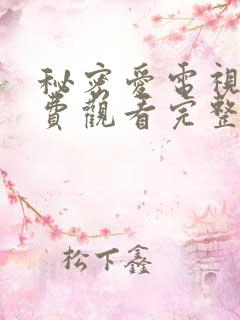 秘密愛電視
費觀看完整
松下鑫